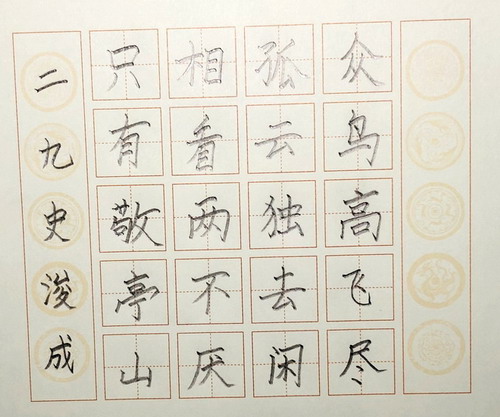 众鸟高飞尽
孤云独去闲
相看两不厌
只有敬亭山
二九史浚成